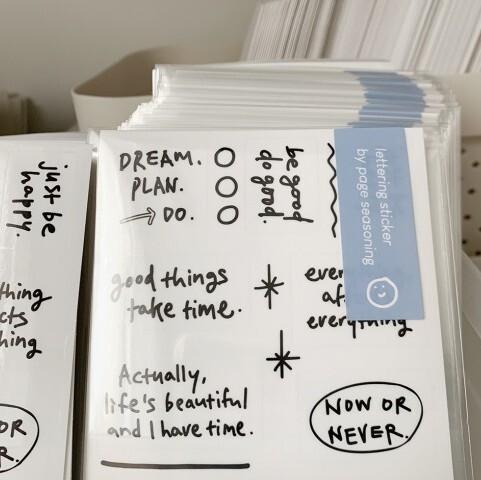 just be
happy.
thing
cts
hing
OR
R.
DREAM.
PLAN.
DO.
be good
do good.
lettering sticker
by page seasoning
good things
take time.
everything
Actually,
life's beautiful
and I have time.
NOW OR
NEVER.